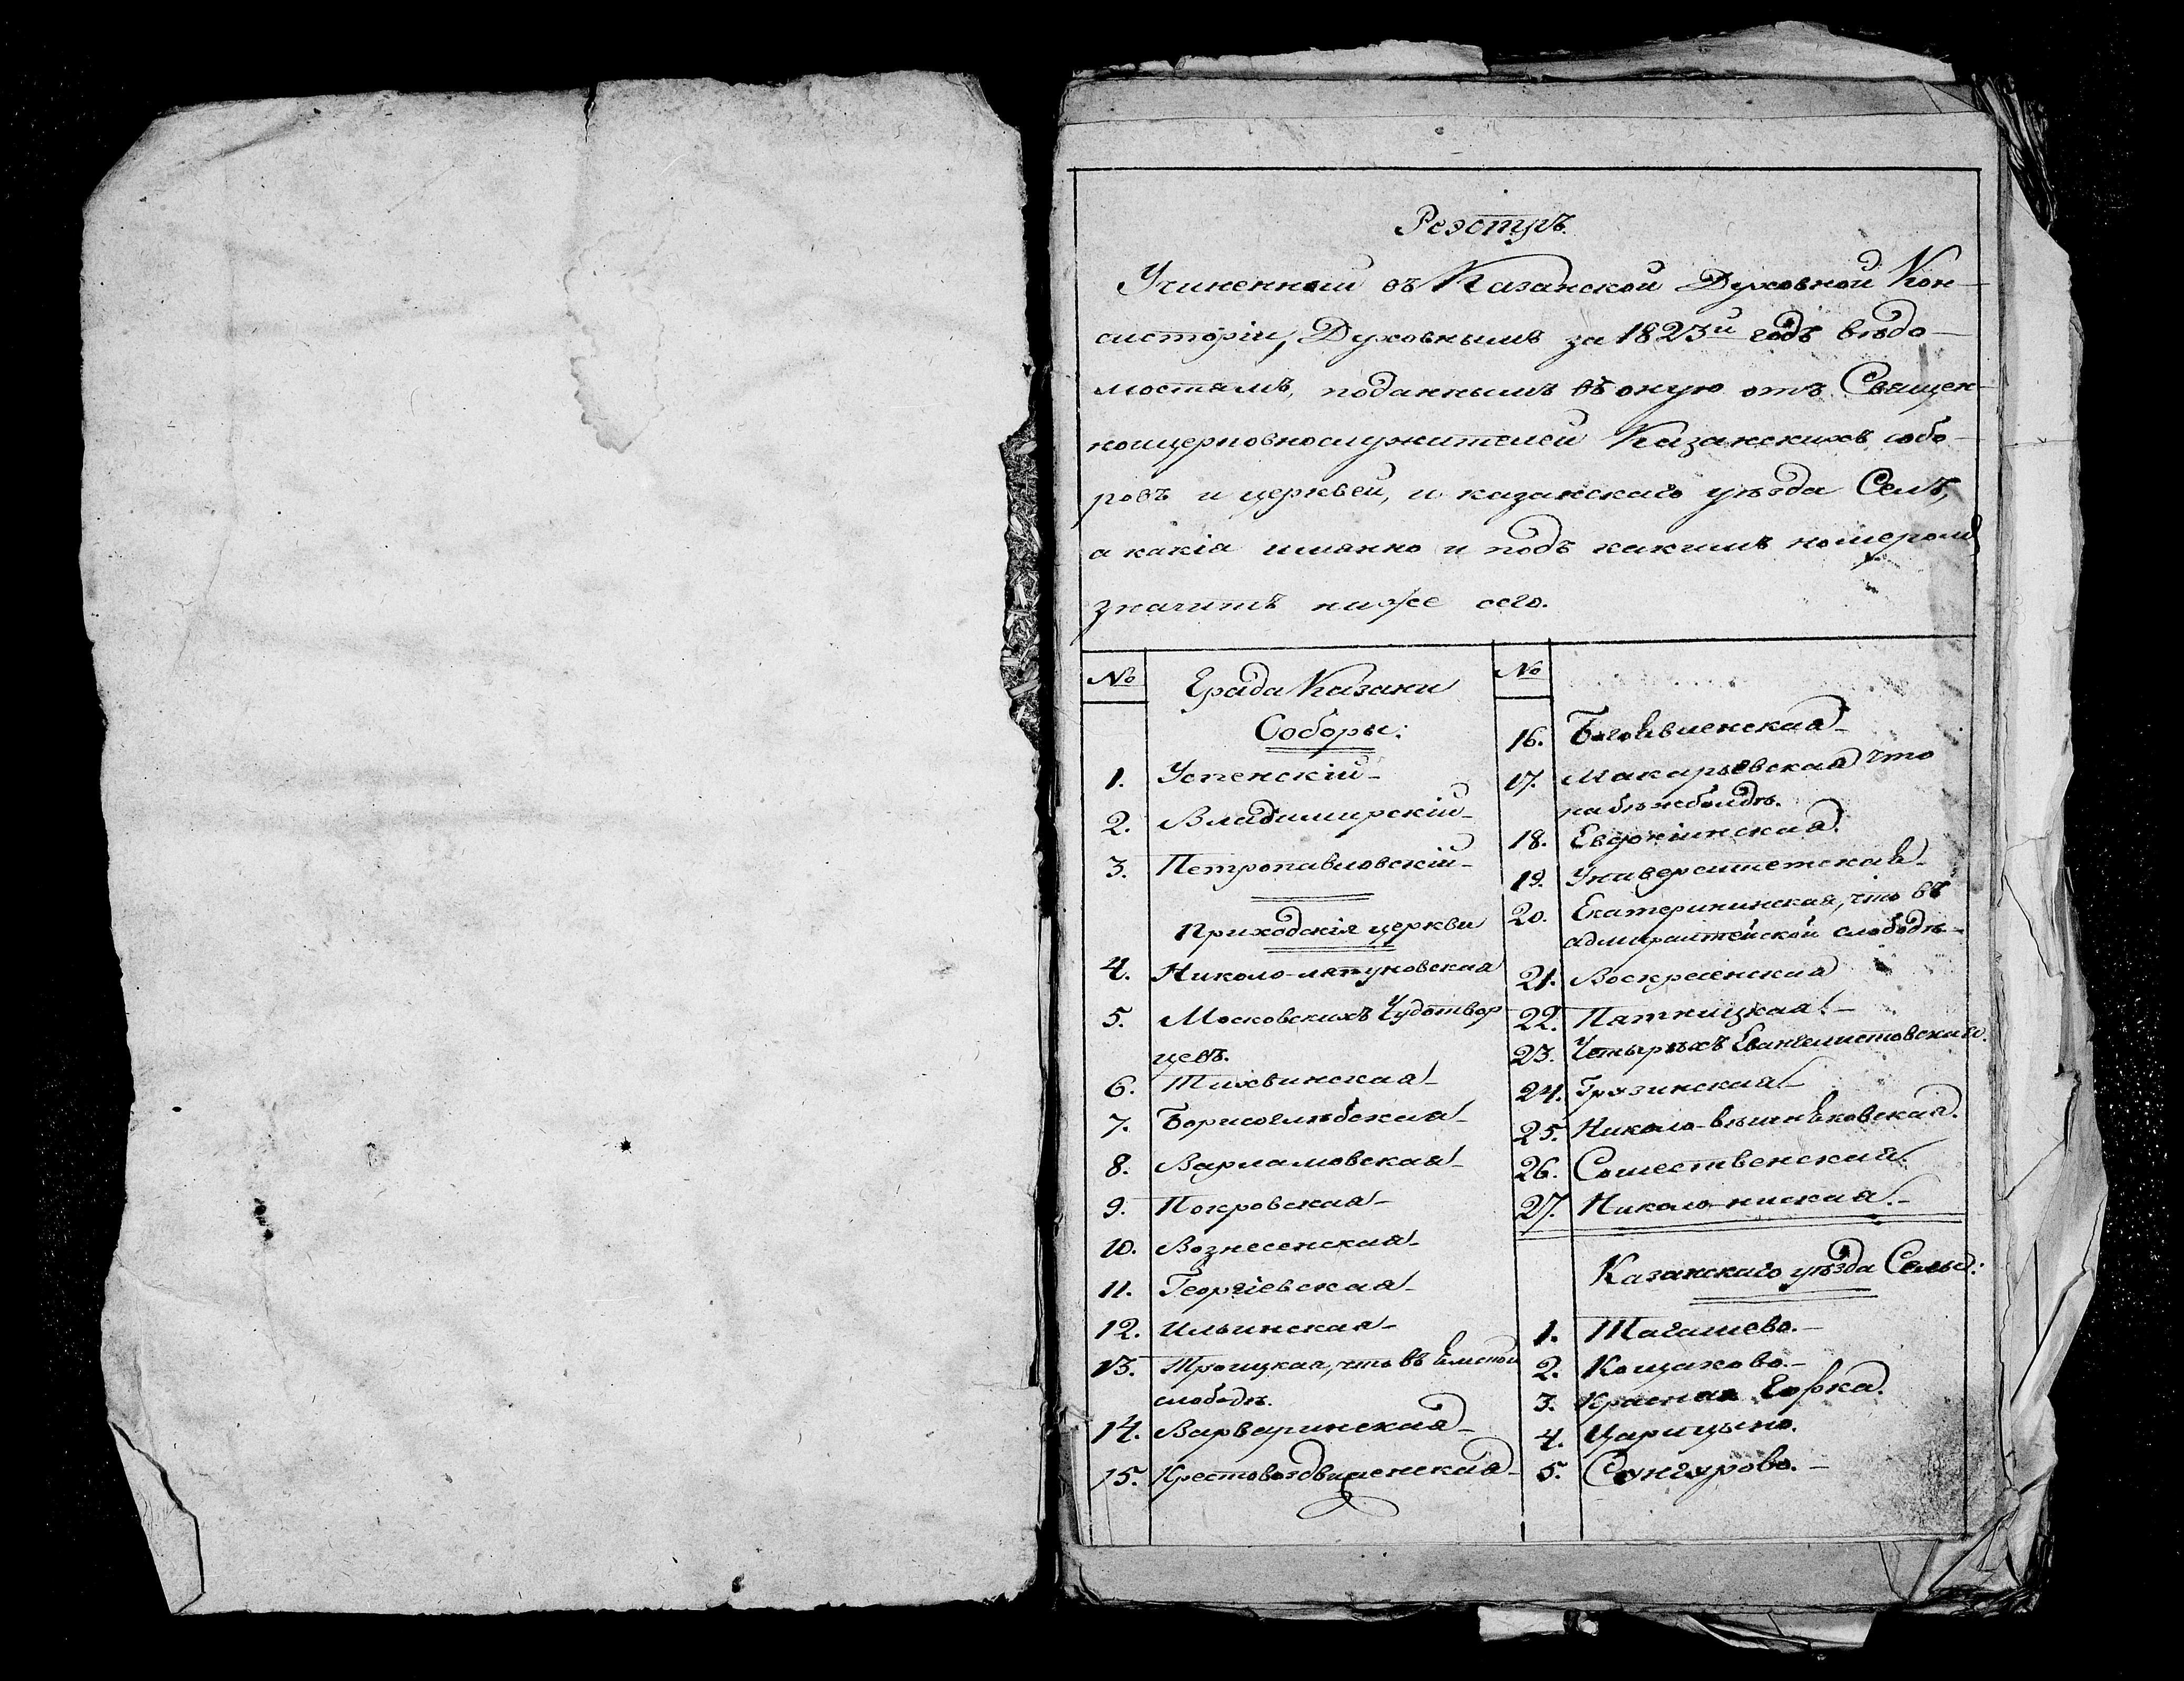 Реэстръ.
Учиненный въ Казанской Духовной Кон-
систоріи, Духовнымъ за 1823й годъ вѣдо-
мостямъ, поданнымъ въ оную отъ Священ-
ноцерковнослужителей Казанскихъ собо-
ровъ и церквей, и казанскаго уѣзда Селъ,
а какія имянно и подъ какимъ номеромъ
значитъ ниже сего.
№
Града Казани
Соборы:
1. Успенскій
2. Владимирскій
3. Петропавловскій
Приходскія церкви
4. Николо-ляпуновская
5. Московскихъ Чудотвор
цевъ.
6. Тихвинская
7. Борисоглѣбская
8. Варламовская
9. Покровская
10. Вознесенская
11. Георгіевская
12. Ильинская
13. Троицкая, что въ Ямской
слободѣ.
14. Варваринская
15. Крестовоздвиженская
№
16. Богоявленская
17. Макарьевская что
на бѣжболдѣ.
18. Евдокіинская.
19. Университетская
20. Екатерининская, что въ
адмиралтейской слободѣ
21. Воскресенская
22. Пятницкая.
23. Четырехъ Евангелистовская.
24. Грузинская
25. Николо-вѣшняковская.
26. Сошественская.
27. Николо-ниская.
Казанскаго уѣзда Селы:
1. Тагашево.
2. Кощаково.
3. Красная Горка.
4. Царицыно.
5. Сунгурово.